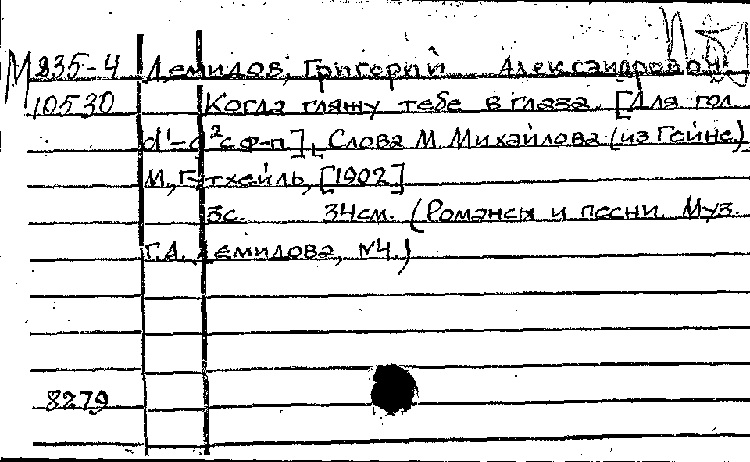 М 235-4 Демидов, Григорий Александрович
10530 Когда гляжу тебе в глаза. [Для гол.
d¹-g² с ф-п], Слова М. Михайлова (из Гейне)
М., Гутхейль, [1902]
3с. 34см. (Романсы и песни. Муз.
Г.А. Демидова, №4.)
8279